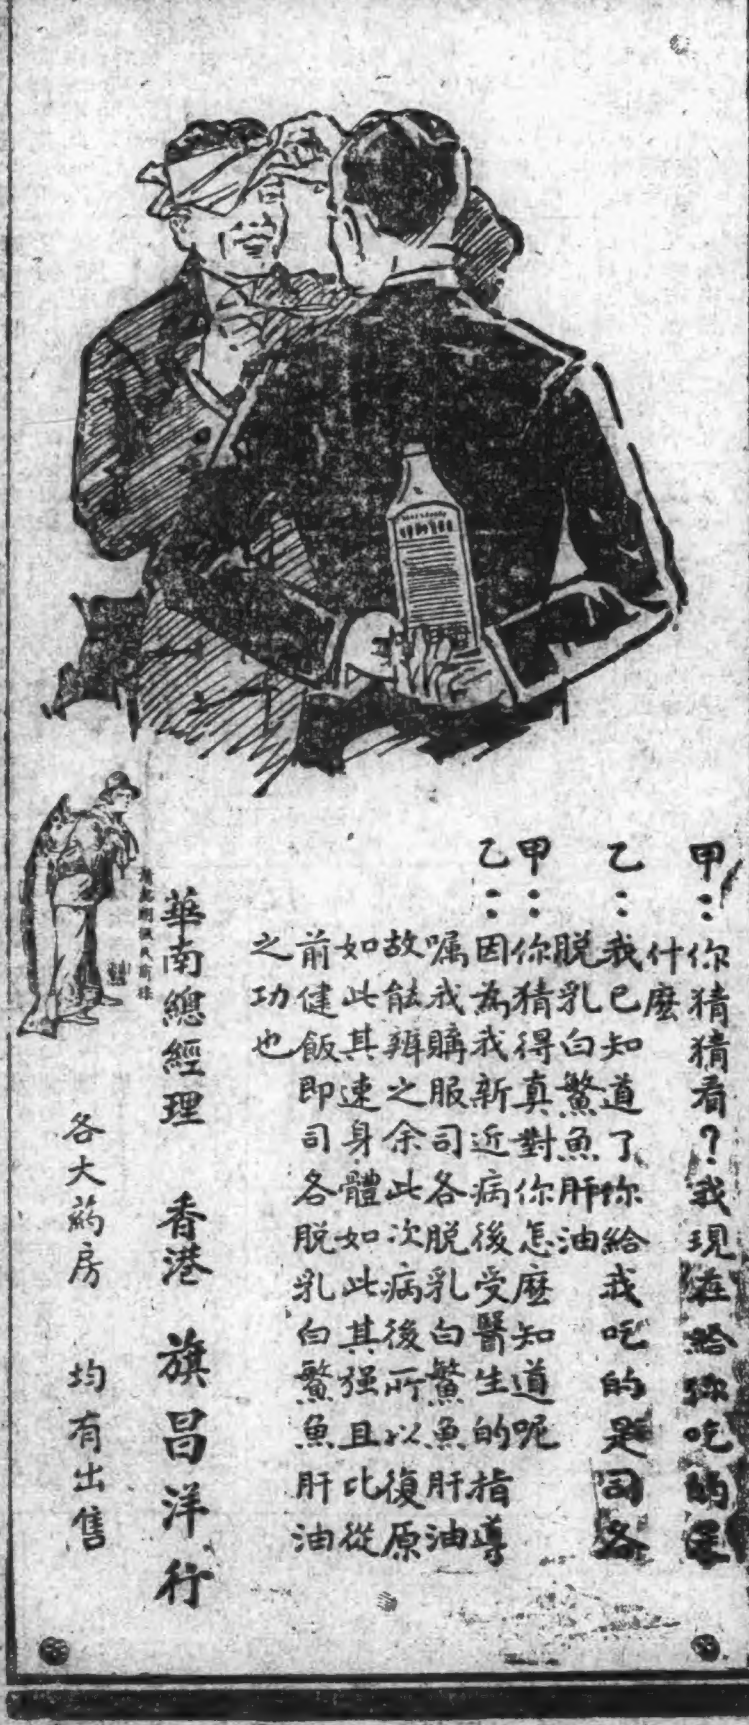 甲：你猜猜看？我現在給你吃的是
什麼
乙：我已知道了你給我吃的是司各
脫乳白鰵魚肝油
甲：你猜得真對你怎麼知道呢
乙：因為我新近病後受醫生的指導
囑我購服司各脫乳白鰵魚肝油
故能辨之余此次病後所以復原
如此其速身體如此其强且比從
前健飯即司各脫乳白鰵魚肝油
之功也
華南總經理 香港 旗昌洋行
各大葯房 均有出售